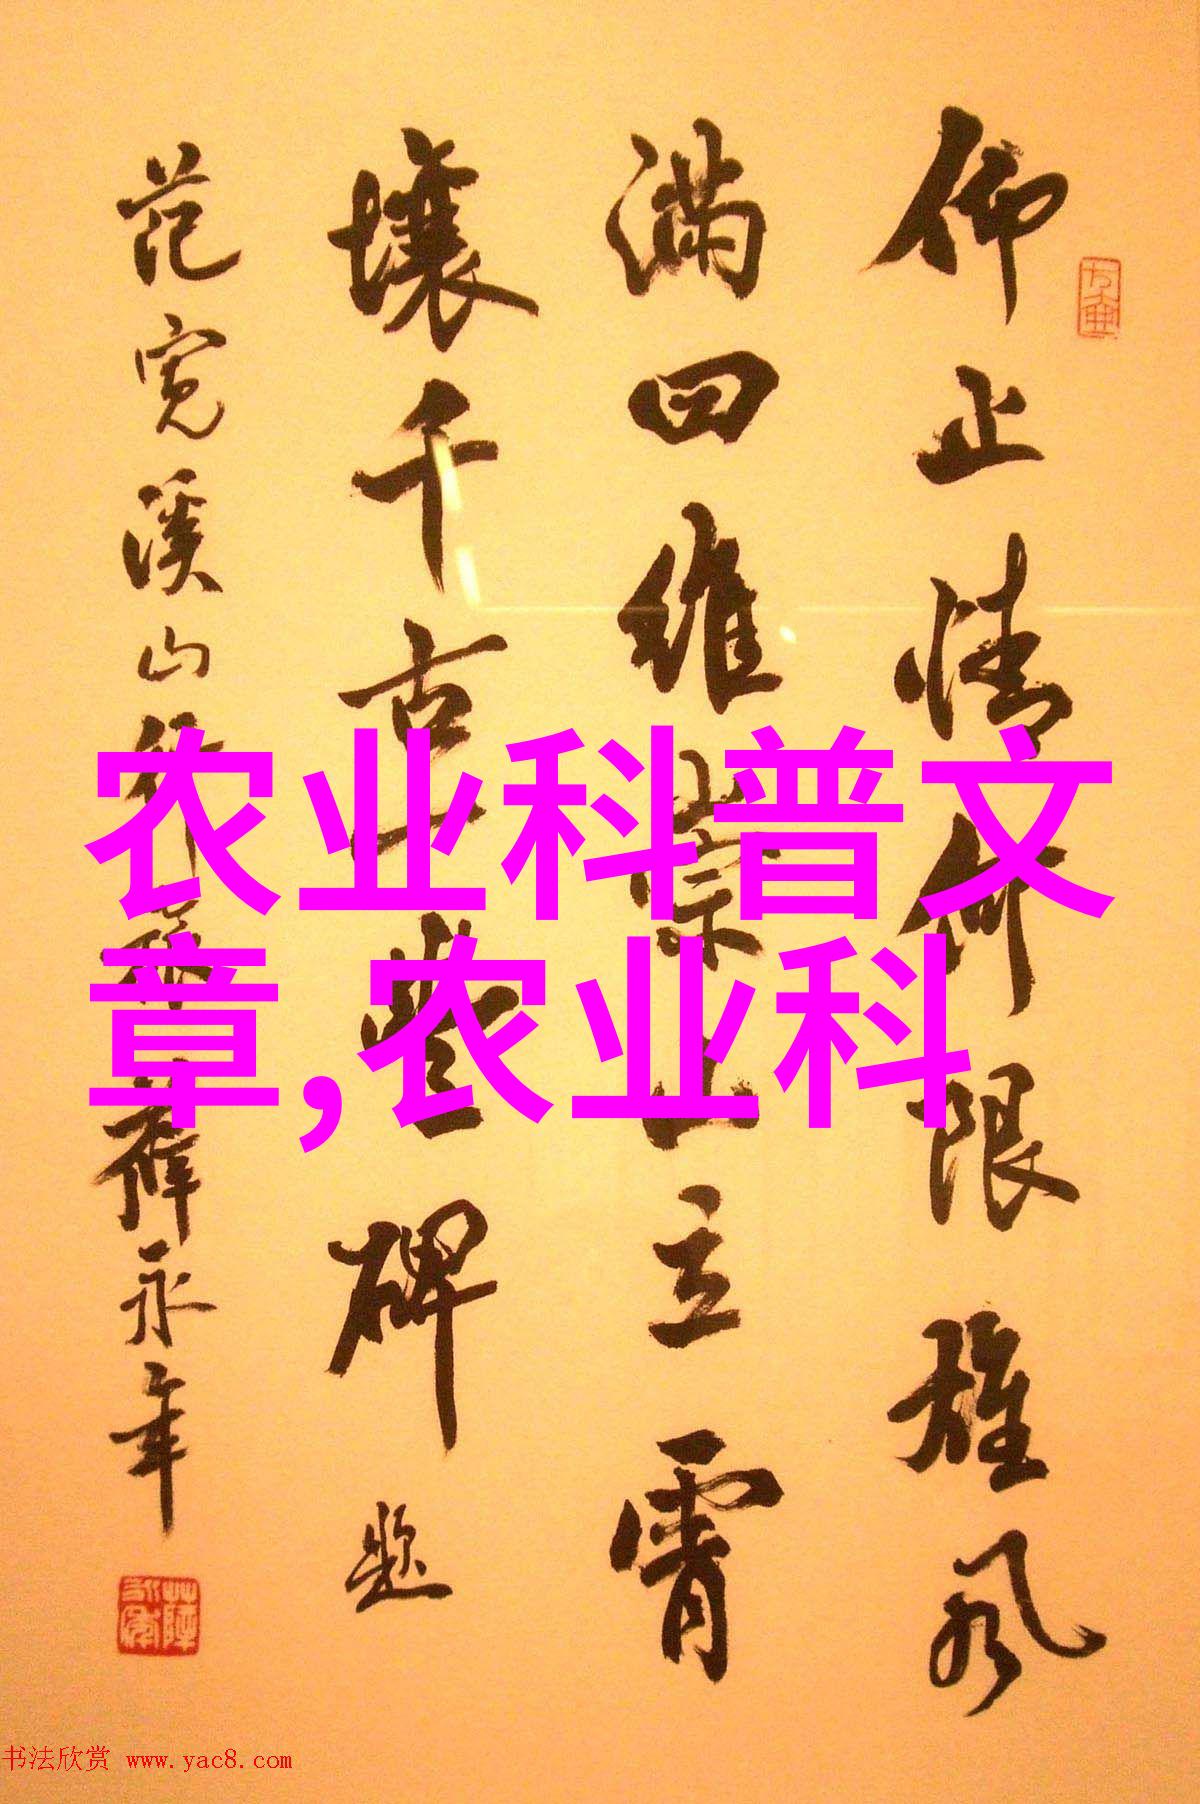 仰止情何限雄风
满四维崇山立霄
壤千古一丰碑题
范宽溪山行旅薛永年
农业科普文
章,农业科
书法欣赏 www.yac8.com